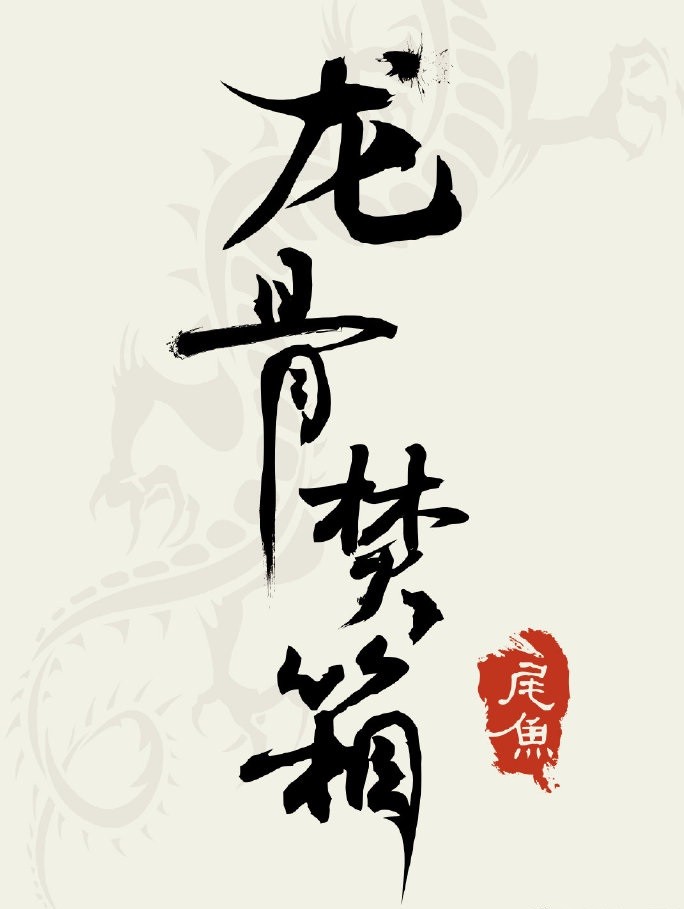 龙骨焚箱
尾魚